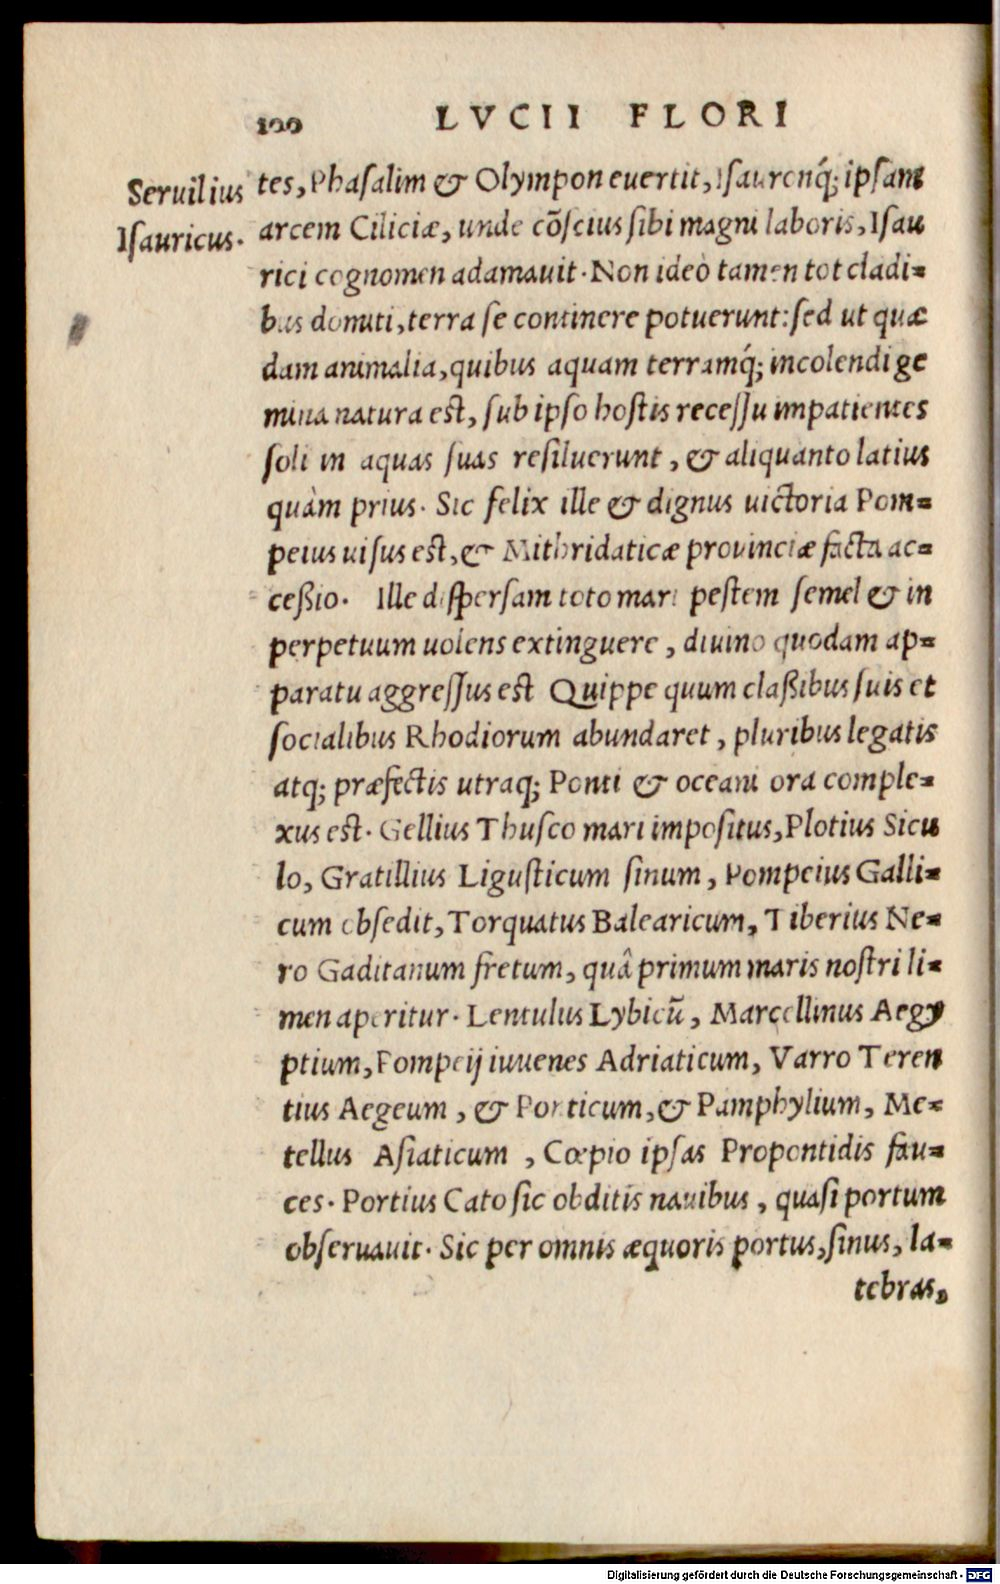 100 LVCII FLORI
Seruilius
Isauricus.
tes, Phasalim & Olympon euertit, Isauronq́; ipsam
arcem Ciliciæ, unde cõscius sibi magni laboris, Isau
rici cognomen adamauit. Non ideo tamen tot cladi=
bus domiti, terra se continere potuerunt: sed ut quæ
dam animalia, quibus aquam terramq́; incolendi ge
mina natura est, sub ipso hostis recessu impatientes
soli in aquas suas resiluerunt, & aliquanto latius
quàm prius. Sic felix ille & dignus uictoria Pom=
peius uisus est, & Mithridaticæ prouinciæ facta ac=
ceßio. Ille dispersam toto mari pestem semel & in
perpetuum uolens extinguere, diuino quodam ap=
paratu aggressus est Quippe quum claßibus suis et
socialibus Rhodiorum abundaret, pluribus legatis
atq; præfectis utraq; Ponti & oceani ora comple=
xus est. Gellius Thusco mari impositus, Plotius Sicu
lo, Gratillius Ligusticum sinum, Pompeius Galli=
cum obsedit, Torquatus Balearicum, Tiberius Ne=
ro Gaditanum fretum, quâ primum maris nostri li=
men aperitur. Lentulus Lybicũ, Marcellinus Aegy
ptium, Pompeij iuuenes Adriaticum, Varro Teren
tius Aegeum, & Ponticum, & Pamphylium, Me=
tellus Asiaticum, Cœpio ipsas Propontidis fau=
ces. Portius Cato sic obditis nauibus, quasi portum
obseruauit. Sic per omnis æquoris portus, sinus, la=
tebras,
Digitalisierung gefördert durch die Deutsche Forschungsgemeinschaft - DFG